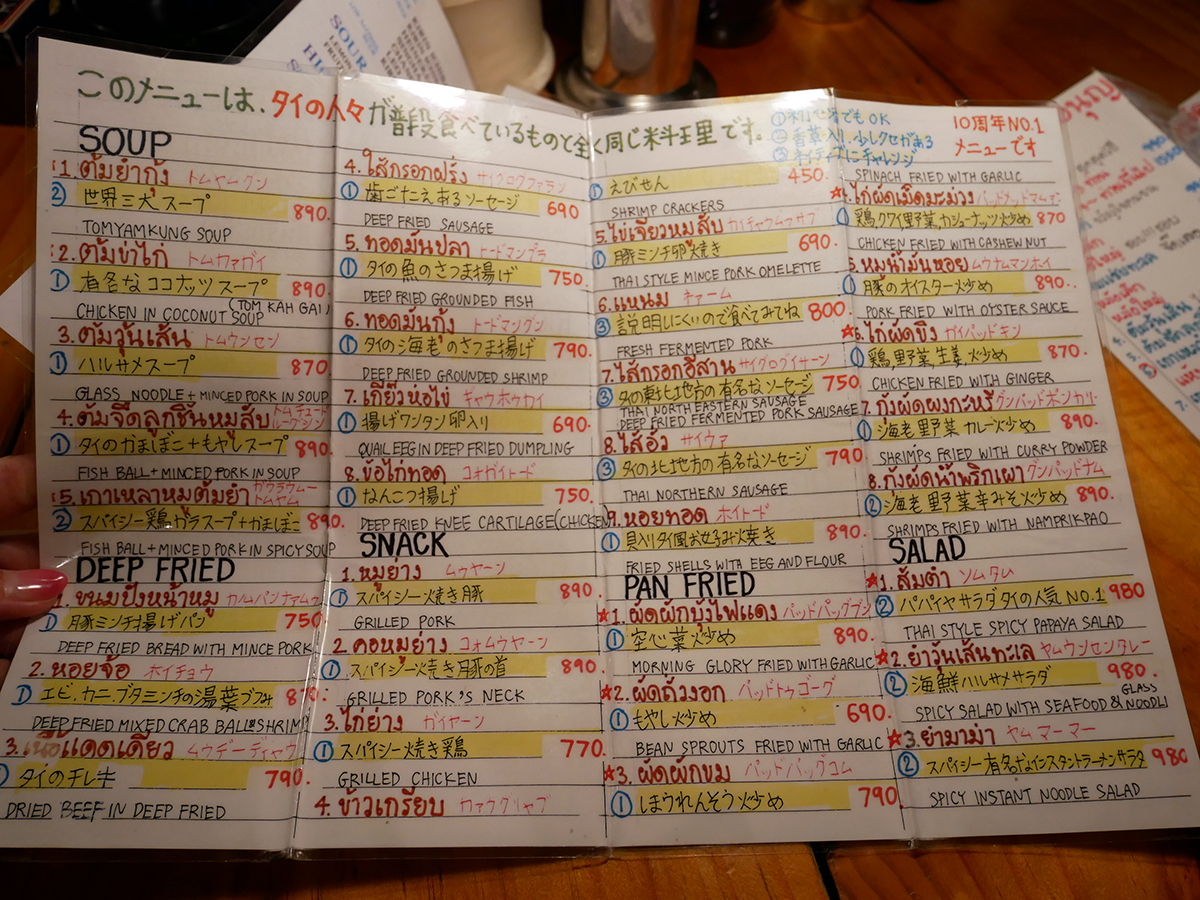 このメニューは、タイの人々が普段食べているものと全く同じ料理です。
①初心者でもOK
②香草入り、少しクセがある
③ネイティブにチャレンジ
10周年NO.1
メニューです
SOUP
1. ต้มยำกุ้ง トムヤムクン
② 世界三大スープ 890.
TOMYAMKUNG SOUP
2. ต้มข่าไก่ トムカァガイ
① 有名なココナッツスープ 890.
CHICKEN IN COCONUT SOUP (TOM KAH GAI)
3. ต้มวุ้นเส้น トムウンセン
① ハルサメスープ 870
GLASS NOODLE + MINCED PORK IN SOUP
4. ต้มจืดลูกชิ้นหมูสับ トムチュードルークシン
① タイのかまぼこ+もやしスープ 890.
FISH BALL + MINCED PORK IN SOUP
5. เกาเหลาหมูต้มยำ ガウラウムートムヤム
② スパイシー鶏ガラスープ+かまぼこ 890.
FISH BALL + MINCED PORK IN SPICY SOUP
DEEP FRIED
1. ขนมปังหน้าหมู カノムパンナァムゥ
① 豚ミンチ揚げパン 750
DEEP FRIED BREAD WITH MINCE PORK
2. หอยจ้อ ホイチョウ
① エビ.カニ.ブタミンチの湯葉づつみ 870.
DEEP FRIED MIXED CRAB BALL & SHRIMP
3. เนื้อแดดเดียว ムウデーディヤウ
① タイの干し牛 790.
DRIED BEEF IN DEEP FRIED
4. ไส้กรอกฝรั่ง サイクロクファラン
① 歯ごたえあるソーセージ 690
DEEP FRIED SAUSAGE
5. ทอดมันปลา トードマンプラ
① タイの魚のさつま揚げ 750.
DEEP FRIED GROUNDED FISH
6. ทอดมันกุ้ง トードマングン
① タイの海老のさつま揚げ 790.
DEEP FRIED GROUNDED SHRIMP
7. เกี๊ยวห่อไข่ ギャウホゥカイ
① 揚げワンタン卵入り 690.
QUAIL EEG IN DEEP FRIED DUMPLING
8. ข้อไก่ทอด コォガイトード
① なんこつ揚げ 750.
DEEP FRIED KNEE CARTILAGE (CHICKEN)
SNACK
1. หมูย่าง ムゥヤーン
① スパイシー焼き豚 890
GRILLED PORK
2. คอหมูย่าง コォムウヤーン
① スパイシー焼き豚の首 890.
GRILLED PORK'S NECK
3. ไก่ย่าง ガイヤーン
① スパイシー焼き鶏 770.
GRILLED CHICKEN
4. ข้าวเกรียบ カァウグリャブ
① えびせん 450.
SHRIMP CRACKERS
5. ไข่เจียวหมูสับ カイチャウムウサブ
① 豚ミンチ卵焼き 690.
THAI STYLE MINCE PORK OMELETTE
6. แหนม ネァーム
③ 説明しにくいので食べてみてね 800.
FRESH FERMENTED PORK
7. ไส้กรอกอีสาน サイグログイサーン
③ タイの東北地方の有名なソーセージ 750
THAI NORTH EASTERN SAUSAGE
DEEP FRIED FERMENTED PORK SAUSAGE
8. ไส้อั่ว サイウァ
③ タイの北地方の有名なソーセージ 790
THAI NORTHERN SAUSAGE
9. หอยทอด ホイトード
① 貝入りタイ風お好み焼き 890.
FRIED SHELLS WITH EEG AND FLOUR
PAN FRIED
★1. ผัดผักบุ้งไฟแดง パッドパッグブン
① 空心菜炒め 890.
MORNING GLORY FRIED WITH GARLIC
★2. ผัดถั่วงอก パッドトゥゴーグ
① もやし炒め 690.
BEAN SPROUTS FRIED WITH GARLIC
★3. ผัดผักขม パッドパッグコム
① ほうれんそう炒め 790
SPINACH FRIED WITH GARLIC
ไก่ผัดเม็ดมะม่วง
① 鶏,クワイ野菜,カシューナッツ炒め 870
CHICKEN FRIED WITH CASHEW NUT
5. หมูน้ำมันหอย ムウナムマンホイ
① 豚のオイスター炒め 890.
PORK FRIED WITH OYSTER SAUCE
★6. ไก่ผัดขิง ガイパッドキン
① 鶏,野菜,生姜,炒め 870.
CHICKEN FRIED WITH GINGER
7. กุ้งผัดผงกะหรี่ グンパッドポンカリー
① 海老野菜カレー炒め 890.
SHRIMPS FRIED WITH CURRY POWDER
8. กุ้งผัดน้ำพริกเผา グンパッドナム
② 海老野菜辛みそ炒め 890.
SHRIMPS FRIED WITH NAMPRIK-PAO
SALAD
★1. ส้มตำ ソムタム
② パパイヤサラダタイの人気NO.1 980
THAI STYLE SPICY PAPAYA SALAD
★2. ยำวุ้นเส้นทะเล ヤムウンセンタレー
② 海鮮ハルサメサラダ 980.
SPICY SALAD WITH SEAFOOD & GLASS NOODLE
★3. ยำมาม่า ヤムマーマー
② スパイシー有名なインスタントラーメンサラダ 980
SPICY INSTANT NOODLE SALAD